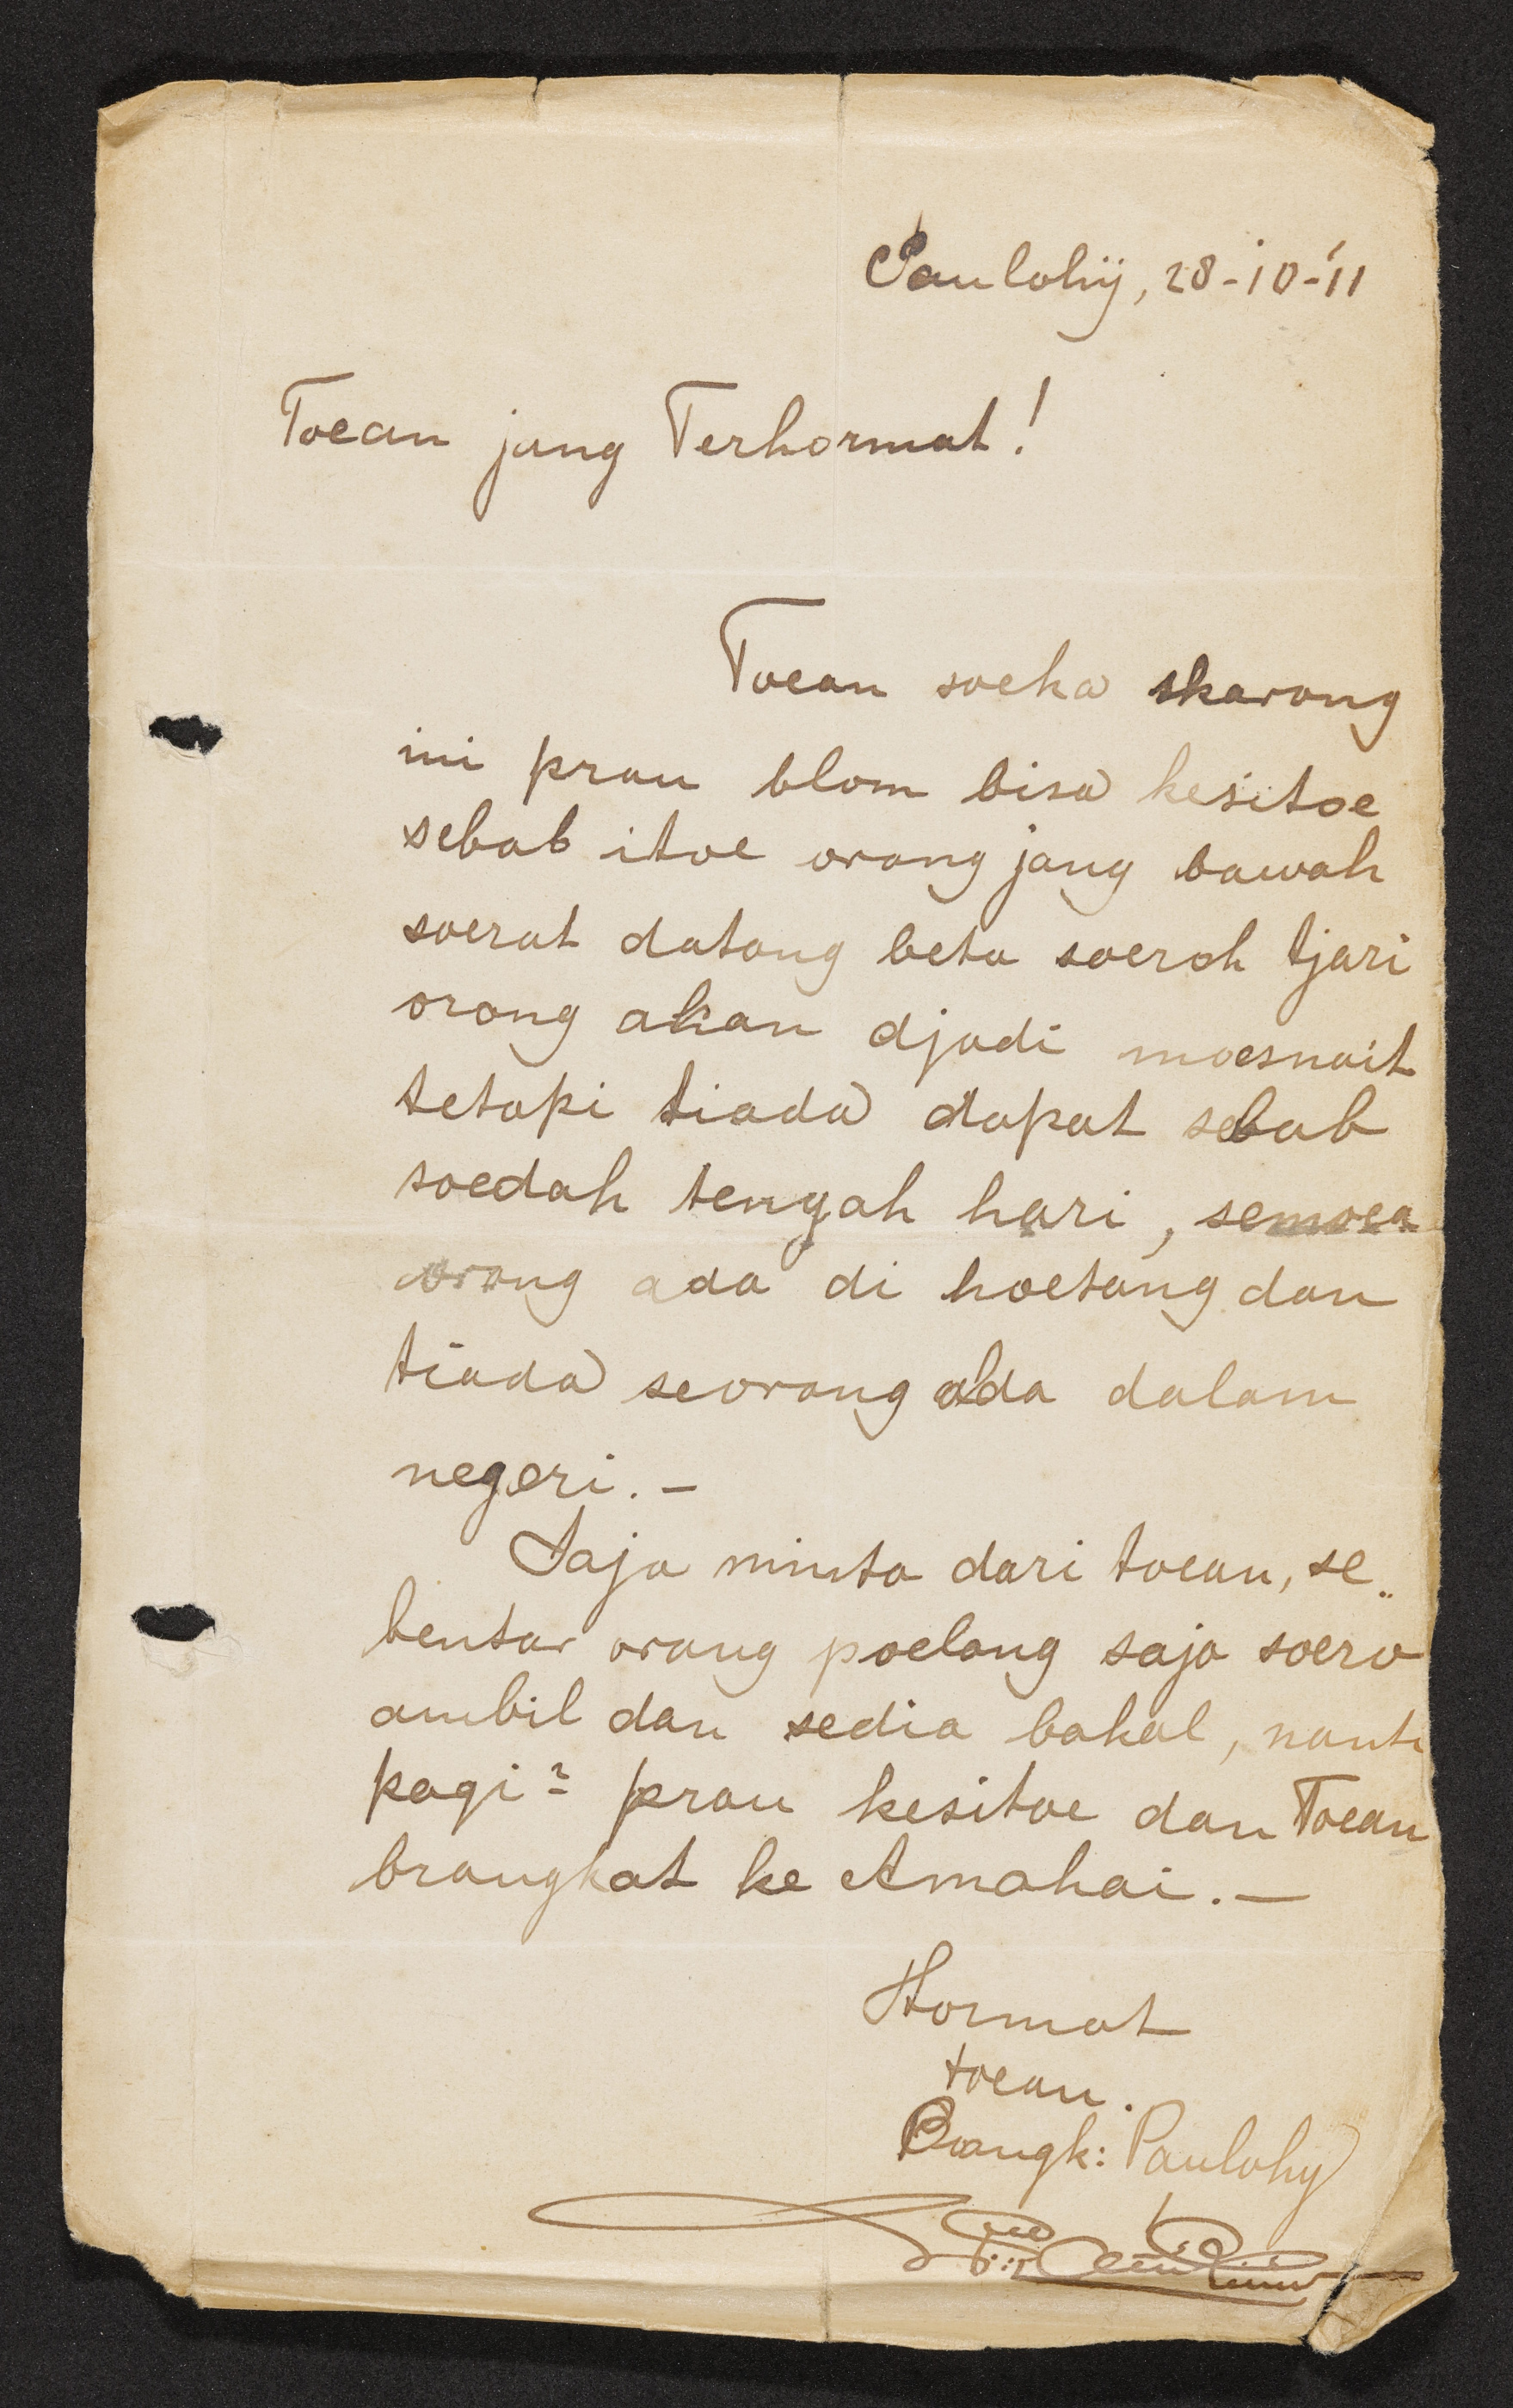 Paulohij, 28-10-'11
Toean jang Terhormat!
Toean soeka skarang
ini prau blom bisa kesitoe
sebab itoe orang jang bawah
soerat datang beta soeroh tjari
orang akan djadi moesnait
tetapi tiada dapat sebab
soedah tengah hari, semoea
orang ada di hoetang dan
tiada seorang ada dalam
negeri. -
Saja minta dari toean, se„
bentar orang poelang saja soero
ambil dan sedia bakal, nanti
pagi² prau kesitoe dan Toean
brangkat ke Amahai. —
Hormat
toean.
Bangk: Paulohy